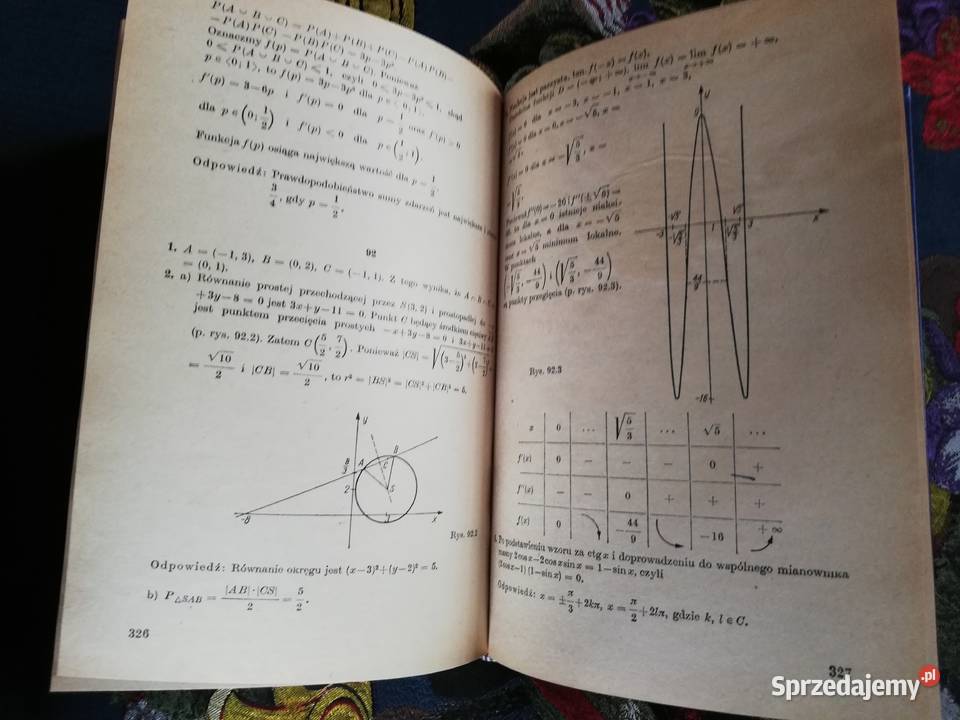 P(A ∪ B ∪ C) = P(A)+P(B)+P(C)
−P(A)P(C) −P(B)P(C) = 3p−3p²
Oznaczmy f(p) = P(A ∪ B ∪ C). Ponieważ
0 ≤ P(A ∪ B ∪ C) ≤ 1, czyli 0 ≤ 3p−3p² ≤ 1, skąd
p ∈ ⟨0; 1⟩, to f(p) = 3p−3p² dla p ∈ ⟨0, 1⟩.
f'(p) = 3−6p i f'(p) = 0 dla p = 1/2 oraz f'(p) > 0
dla p ∈ (0; 1/2) i f'(p) < 0 dla p ∈ (1/2; 1).
Funkcja f(p) osiąga największą wartość dla p = 1/2.
Odpowiedź: Prawdopodobieństwo sumy zdarzeń jest największe i
3/4, gdy p = 1/2.
92
1. A = (−1, 3), B = (0, 2), C = (−1, 1). Z tego wynika, że
= (0, 1).
2. a) Równanie prostej przechodzącej przez S(3, 2) i prostopadłej do
+3y−8 = 0 jest 3x+y−11 = 0. Punkt C będący środkiem cięciwy
jest punktem przecięcia prostych −x+3y−8 = 0 i 3x+y−11
(p. rys. 92.2). Zatem C(5/2, 7/2). Ponieważ |CS| = √((3−5/2)²+
= √10/2 i |CB| = √10/2, to r² = |BS|² = |CS|²+|CB|² = 5.
y
8/3
A
B
C
2
S
−8
x
Rys. 92.2
Odpowiedź: Równanie okręgu jest (x−3)²+(y−2)² = 5.
b) P△SAB = |AB|·|CS|/2 = 5/2.
326
Funkcja jest parzysta, bo f(−x) = f(x).
funkcji D = (−∞; +∞). lim f(x) = lim f(x) = +∞,
= 0 dla x = −3, x = −1, x = 1, x = 3,
= 0 dla x = 0, x = −√5, x =
= 0 dla x = −√(5/3), x =
i f''(±√5) =
to dla x = 0 istnieje maksi-
lokalne, a dla x = −√5
x = √5 minimum lokalne.
punktach
(−√(5/3), −44/9) i (√(5/3), −44/9)
punkty przegięcia (p. rys. 92.3).
y
9
−3
1
3
x
−44/9
−16
Rys. 92.3
x 0 ... √(5/3) ... √5 ...
f'(x) 0 − − − 0 +
f''(x) − − 0 + + +
f(x) 0 −44/9 −16 +∞
Po podstawieniu wzoru za ctg x i doprowadzeniu do wspólnego mianownika
mamy 2cos x−2cos x sin x = 1−sin x, czyli
(2cos x−1) (1−sin x) = 0.
Odpowiedź: x = ±π/3+2kπ, x = π/2+2lπ, gdzie k, l ∈ C.
327
Sprzedajemy.pl